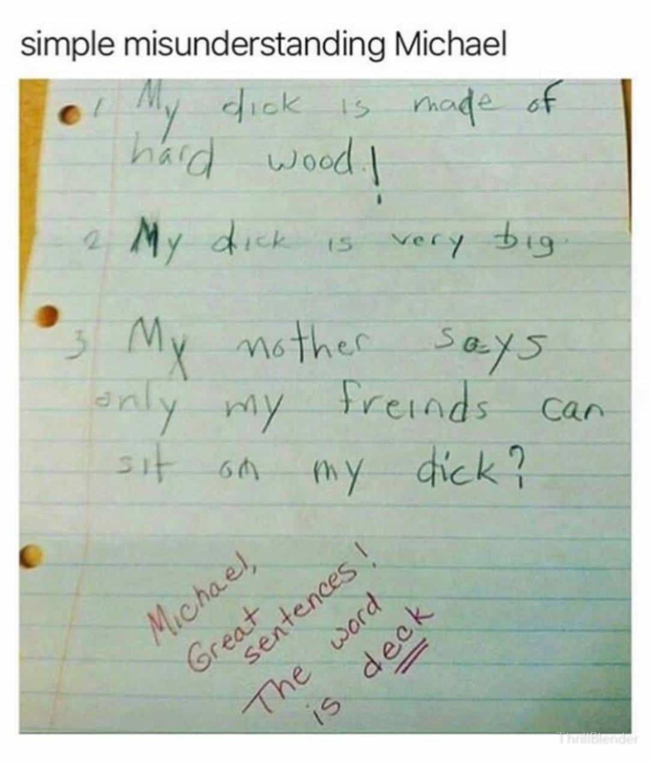 simple misunderstanding Michael
1 My dick is made of
hard wood!
2 My dick is very big.
3 My mother says
only my freinds can
sit on my dick?
Michael,
Great
sentences!
The word
is deck
ThrillBlender